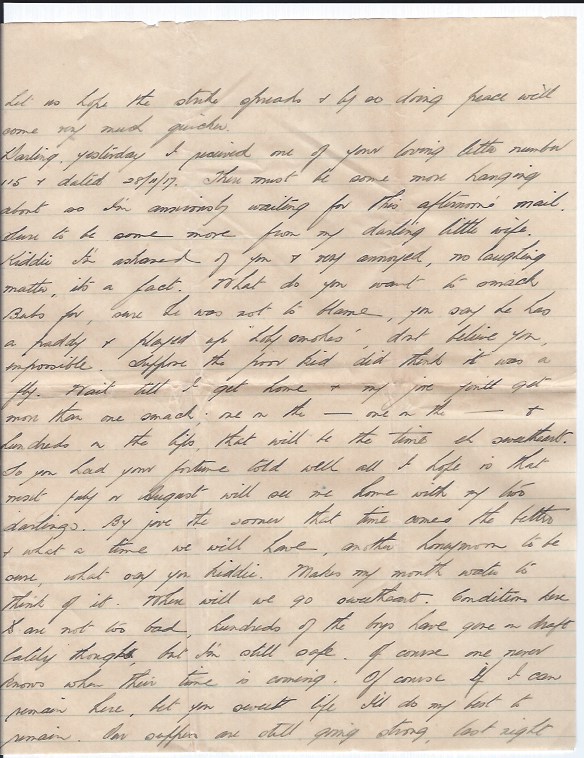 Let us hope the strike spreads & by so doing peace will
come very much quicker.
Darling, yesterday I received one of your loving letter number
115 & dated 28/11/17. There must be some more hanging
about so I'm anxiously waiting for this afternoons mail.
Sure to be some more from my darling little wife.
Kiddie I'm ashamed of you & very annoyed, no laughing
matter, its a fact. What do you want to smack
Bubs for, sure he was not to blame, you say he has
a paddy & played up 'holy smokes', dont believe you,
impossible. Suppose the poor kid did think it was a
fly. Wait till I get home & my jove you'll get
more than one smack; one on the — one on the — &
hundreds on the lips that will be the time eh sweetheart.
So you had your fortune told well all I hope is that
next July or August will see me home with my two
darlings. By jove the sooner that time comes the better
& what a time we will have, another honeymoon to be
sure, what say you Kiddie. Makes my mouth water to
think of it. Where will we go sweetheart. Conditions here
are not too bad, hundreds of the boys have gone on draft
lately though, but I'm still safe. Of course one never
knows when their time is coming. Of course if I can
remain here, bet you sweet life I'll do my best to
remain. Our suppers are still going strong, last night